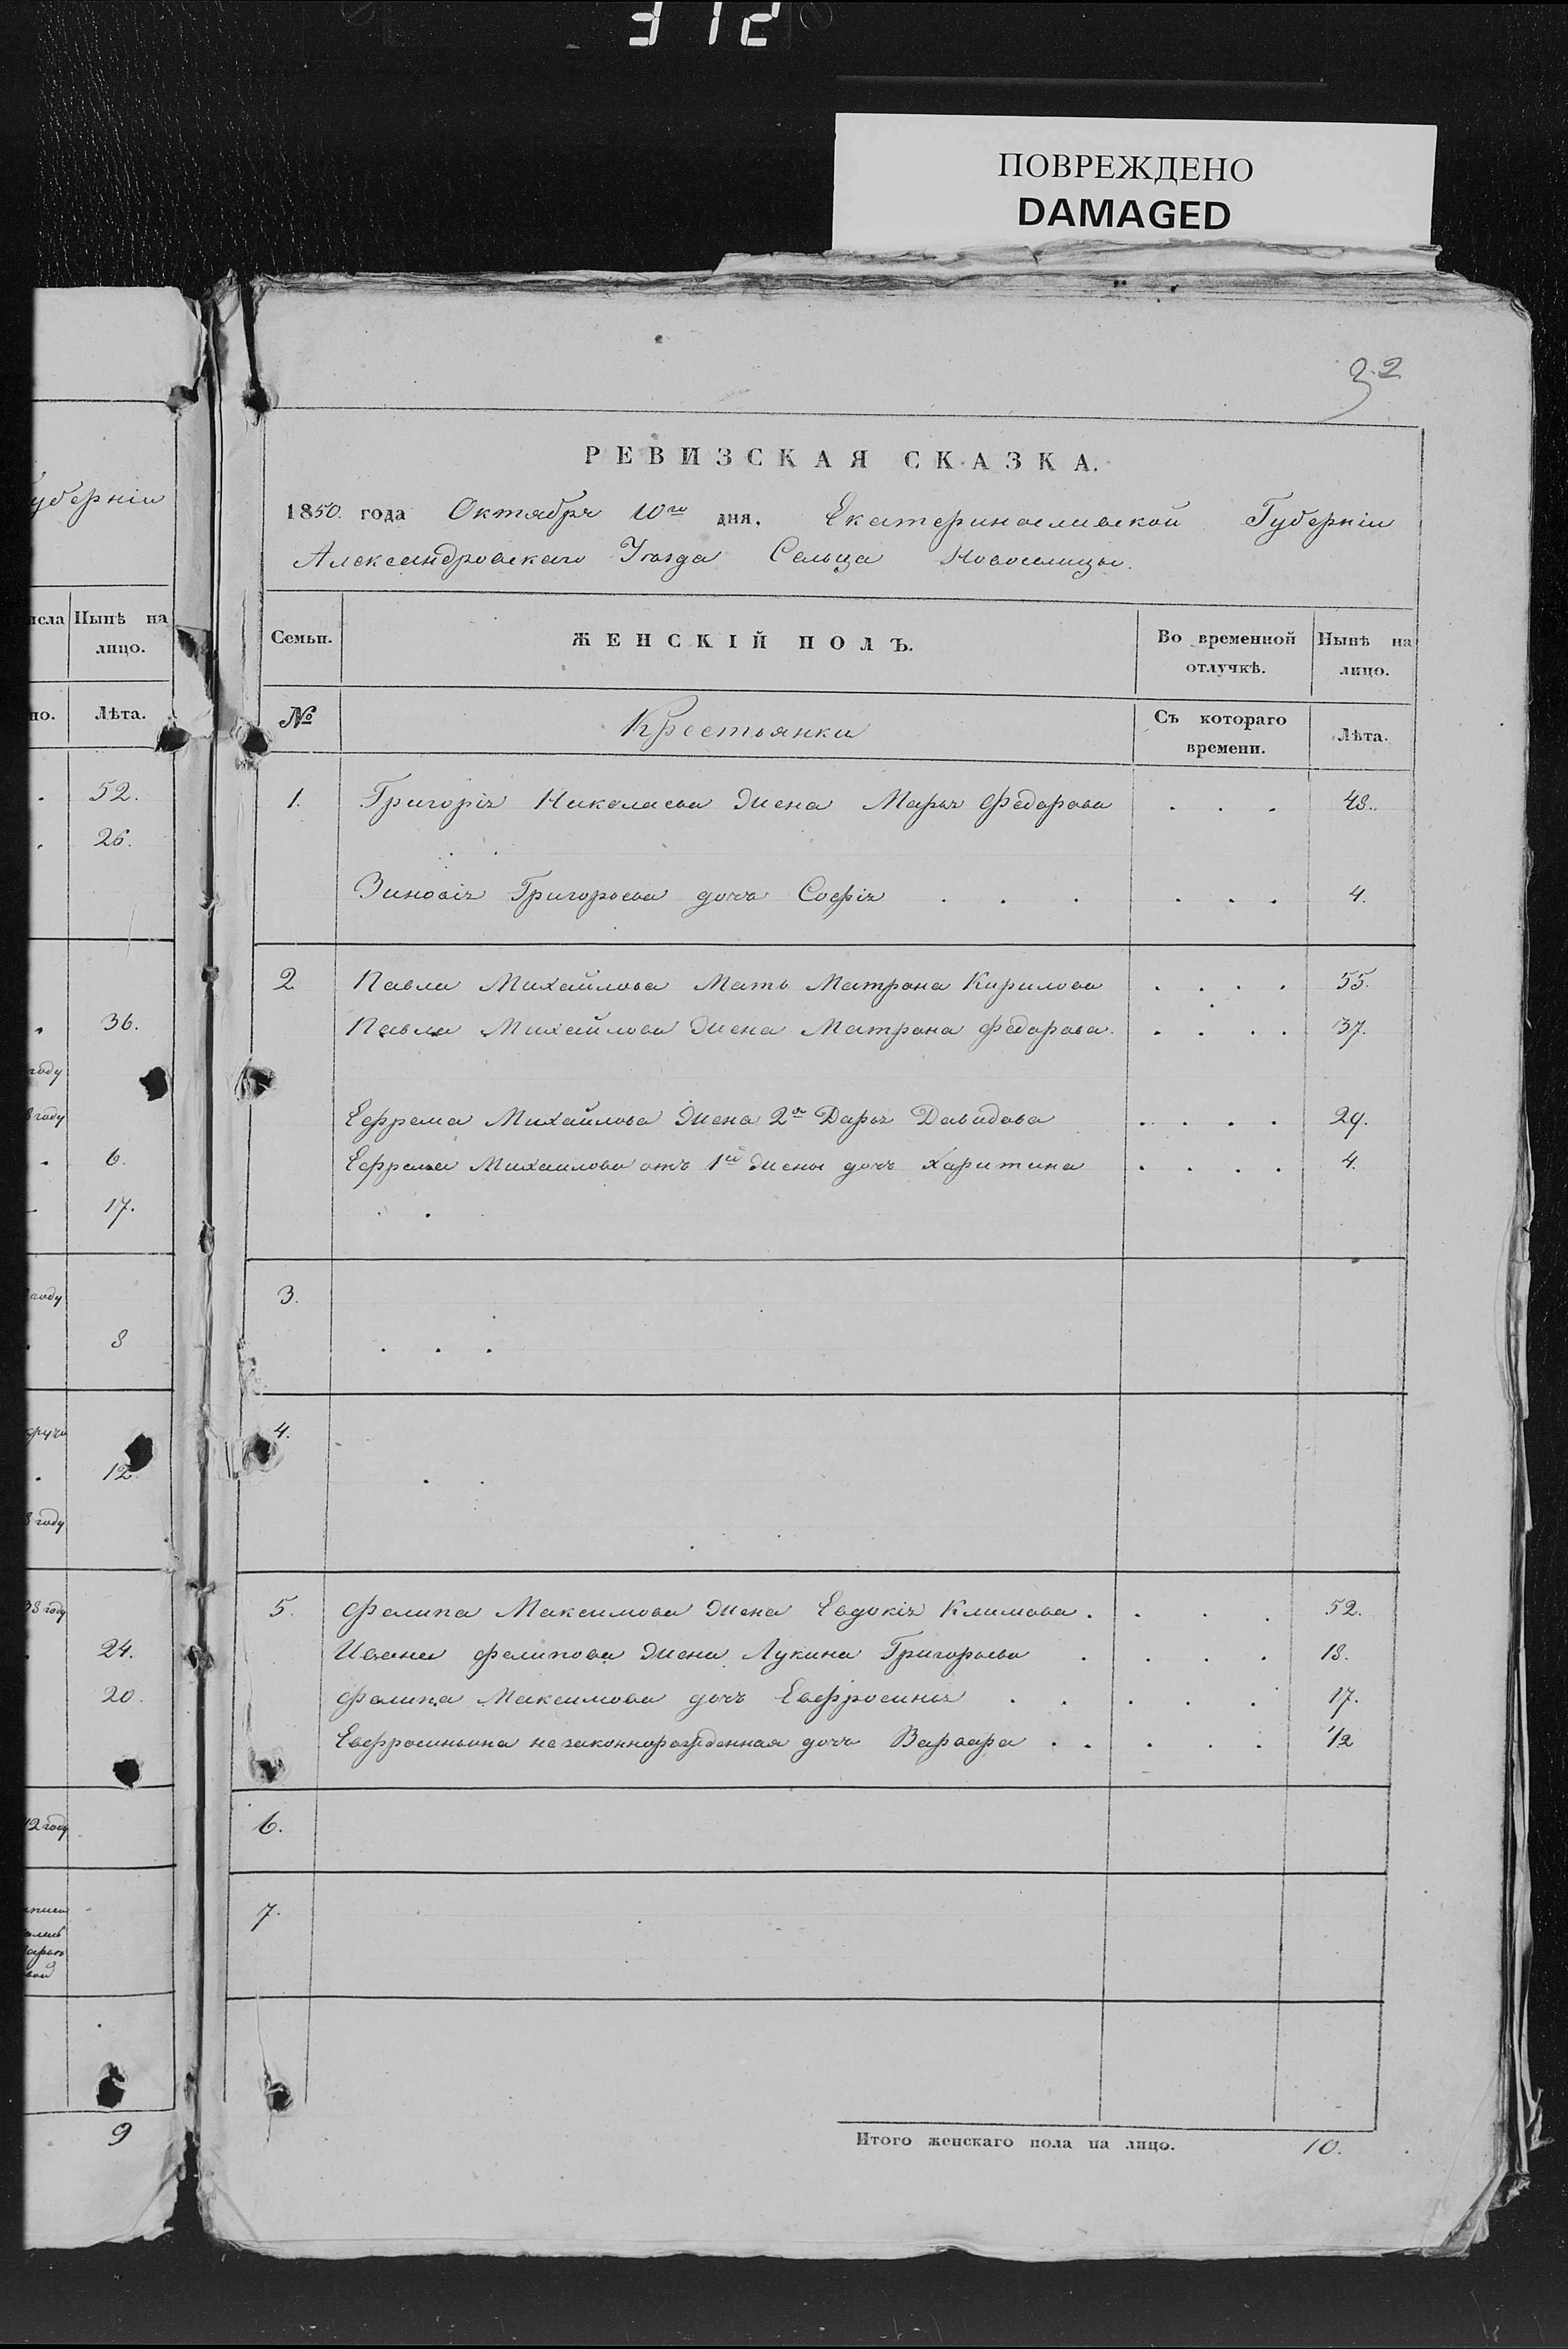 312
ПОВРЕЖДЕНО
DAMAGED
32
уберніи
исла Нынѣ на лицо.
но. Лѣта.
52.
26.
36.
году
8 году
6.
17.
году
8
12.
8 году
38 году
24.
20.
12 году
9
РЕВИЗСКАЯ СКАЗКА.
1850. года Октября 10го дня. Екатеринославской Губерніи
Александровскаго Уѣзда Сельца Новоселицы.
Семьи. ЖЕНСКІЙ ПОЛЪ. Во временной отлучкѣ. Нынѣ на лицо.
№ Крестьянки Съ котораго времени. Лѣта.
1. Григорія Николаева жена Марья Федорова . . . 48.
Зиновія Григорьева дочь Софія . . . . . . 4.
2 Павла Михайлова Мать Матрона Кирилова . . . . 55.
Павла Михайлова жена Матрона Федорова . . . . 37.
Ефрема Михайлова жена 2я Дарья Давидова . . . . 29.
Ефрема Михайлова отъ 1й жены дочь Харитина . . . . 4.
3.
4.
5. Филипа Максимова жена Евдокія Климова . . . . 52.
Ивана Филипова жена Лукина Григорьева . . . . 18.
Филипа Максимова дочь Евфросинья . . . . . 17.
Евфросиньина незаконнорожденная дочь Варвара . . . . . 1/2
6.
7.
Итого женскаго пола на лицо. 10.